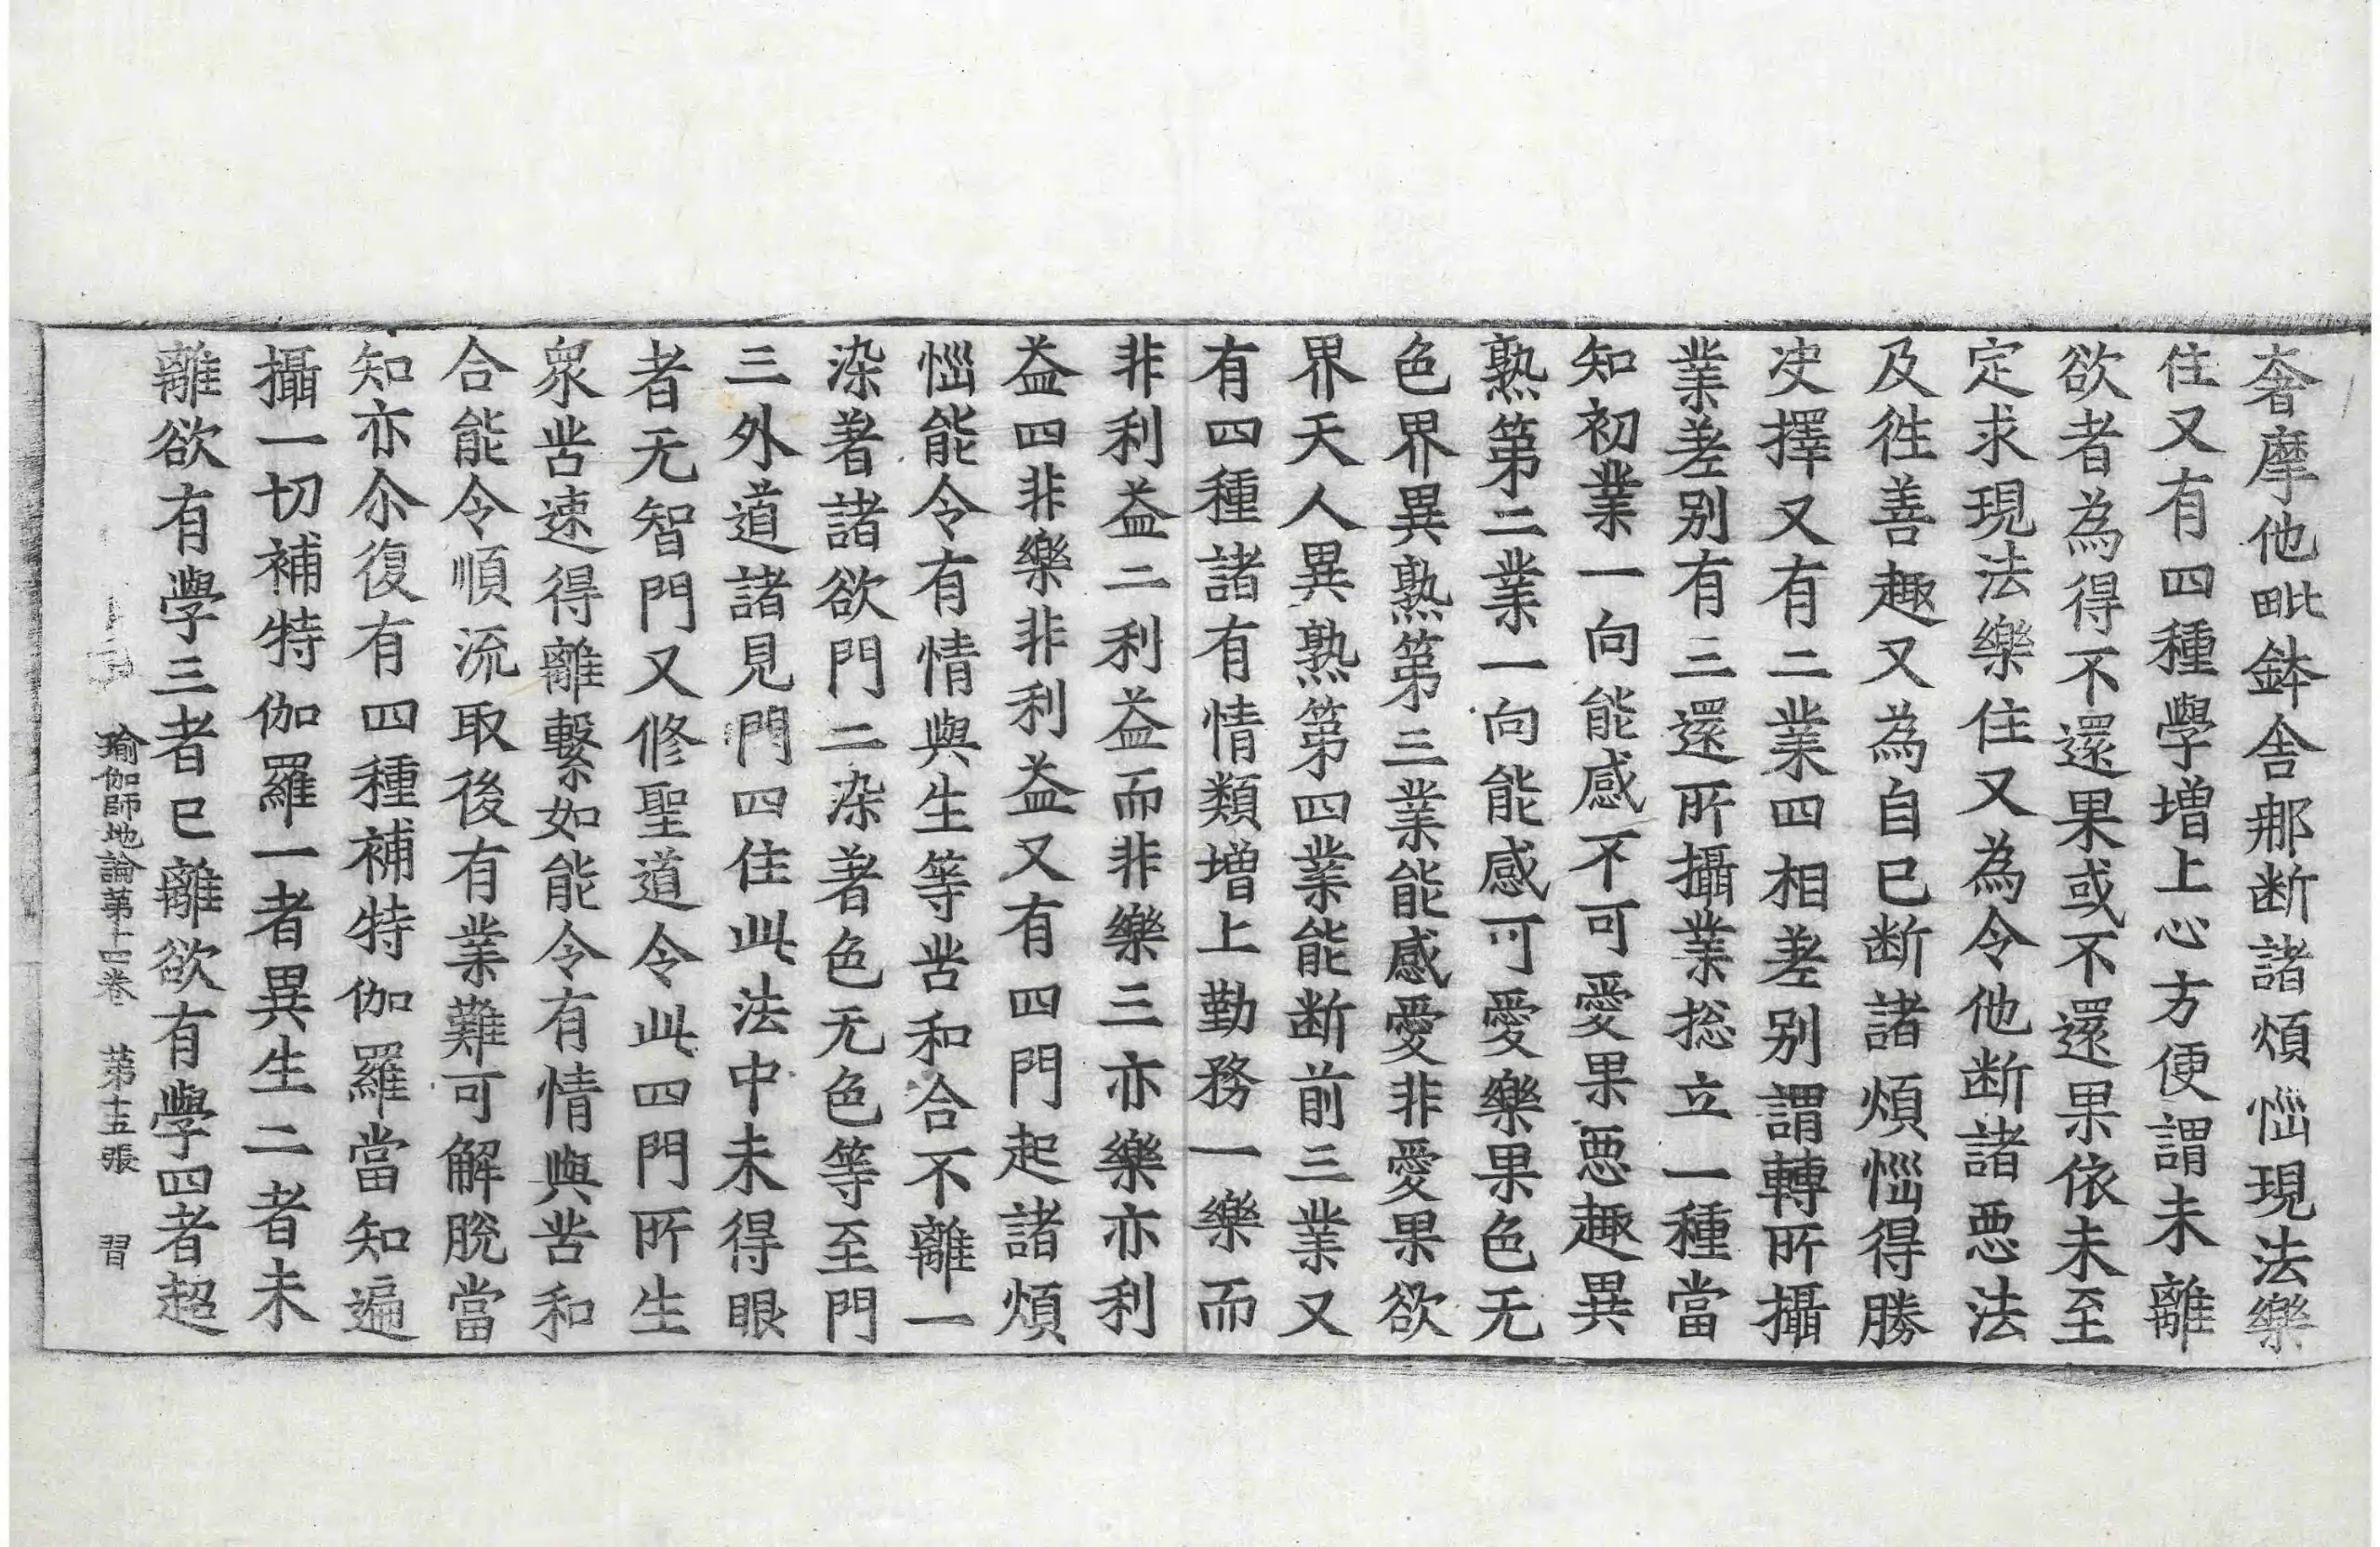 奢摩他毗鉢舍那断諸煩惱現法樂
住又有四種學增上心方便謂未離
欲者為得不還果或不還果依未至
定求現法樂住又為令他断諸惡法
及徃善趣又為自巳断諸煩惱得勝
决擇又有二業四相差别謂轉所攝
業差别有三還所攝業捴立一種當
知初業一向能感不可愛果惡趣異
熟第二業一向能感可愛樂果色无
色界異熟第三業能感愛非愛果欲
界天人異熟第四業能断前三業又
有四種諸有情類增上勤務一樂而
非利益二利益而非樂三亦樂亦利
益四非樂非利益又有四門起諸煩
惱能令有情與生等苦和合不離一
染著諸欲門二染著色无色等至門
三外道諸見門四住此法中未得眼
者无智門又修聖道令此四門所生
衆苦速得離繫如能令有情與苦和
合能令順流取後有業難可解脫當
知亦尒復有四種補特伽羅當知遍
攝一切補特伽羅一者異生二者未
離欲有學三者巳離欲有學四者超
瑜伽師地論苐十四卷　苐十五張　習